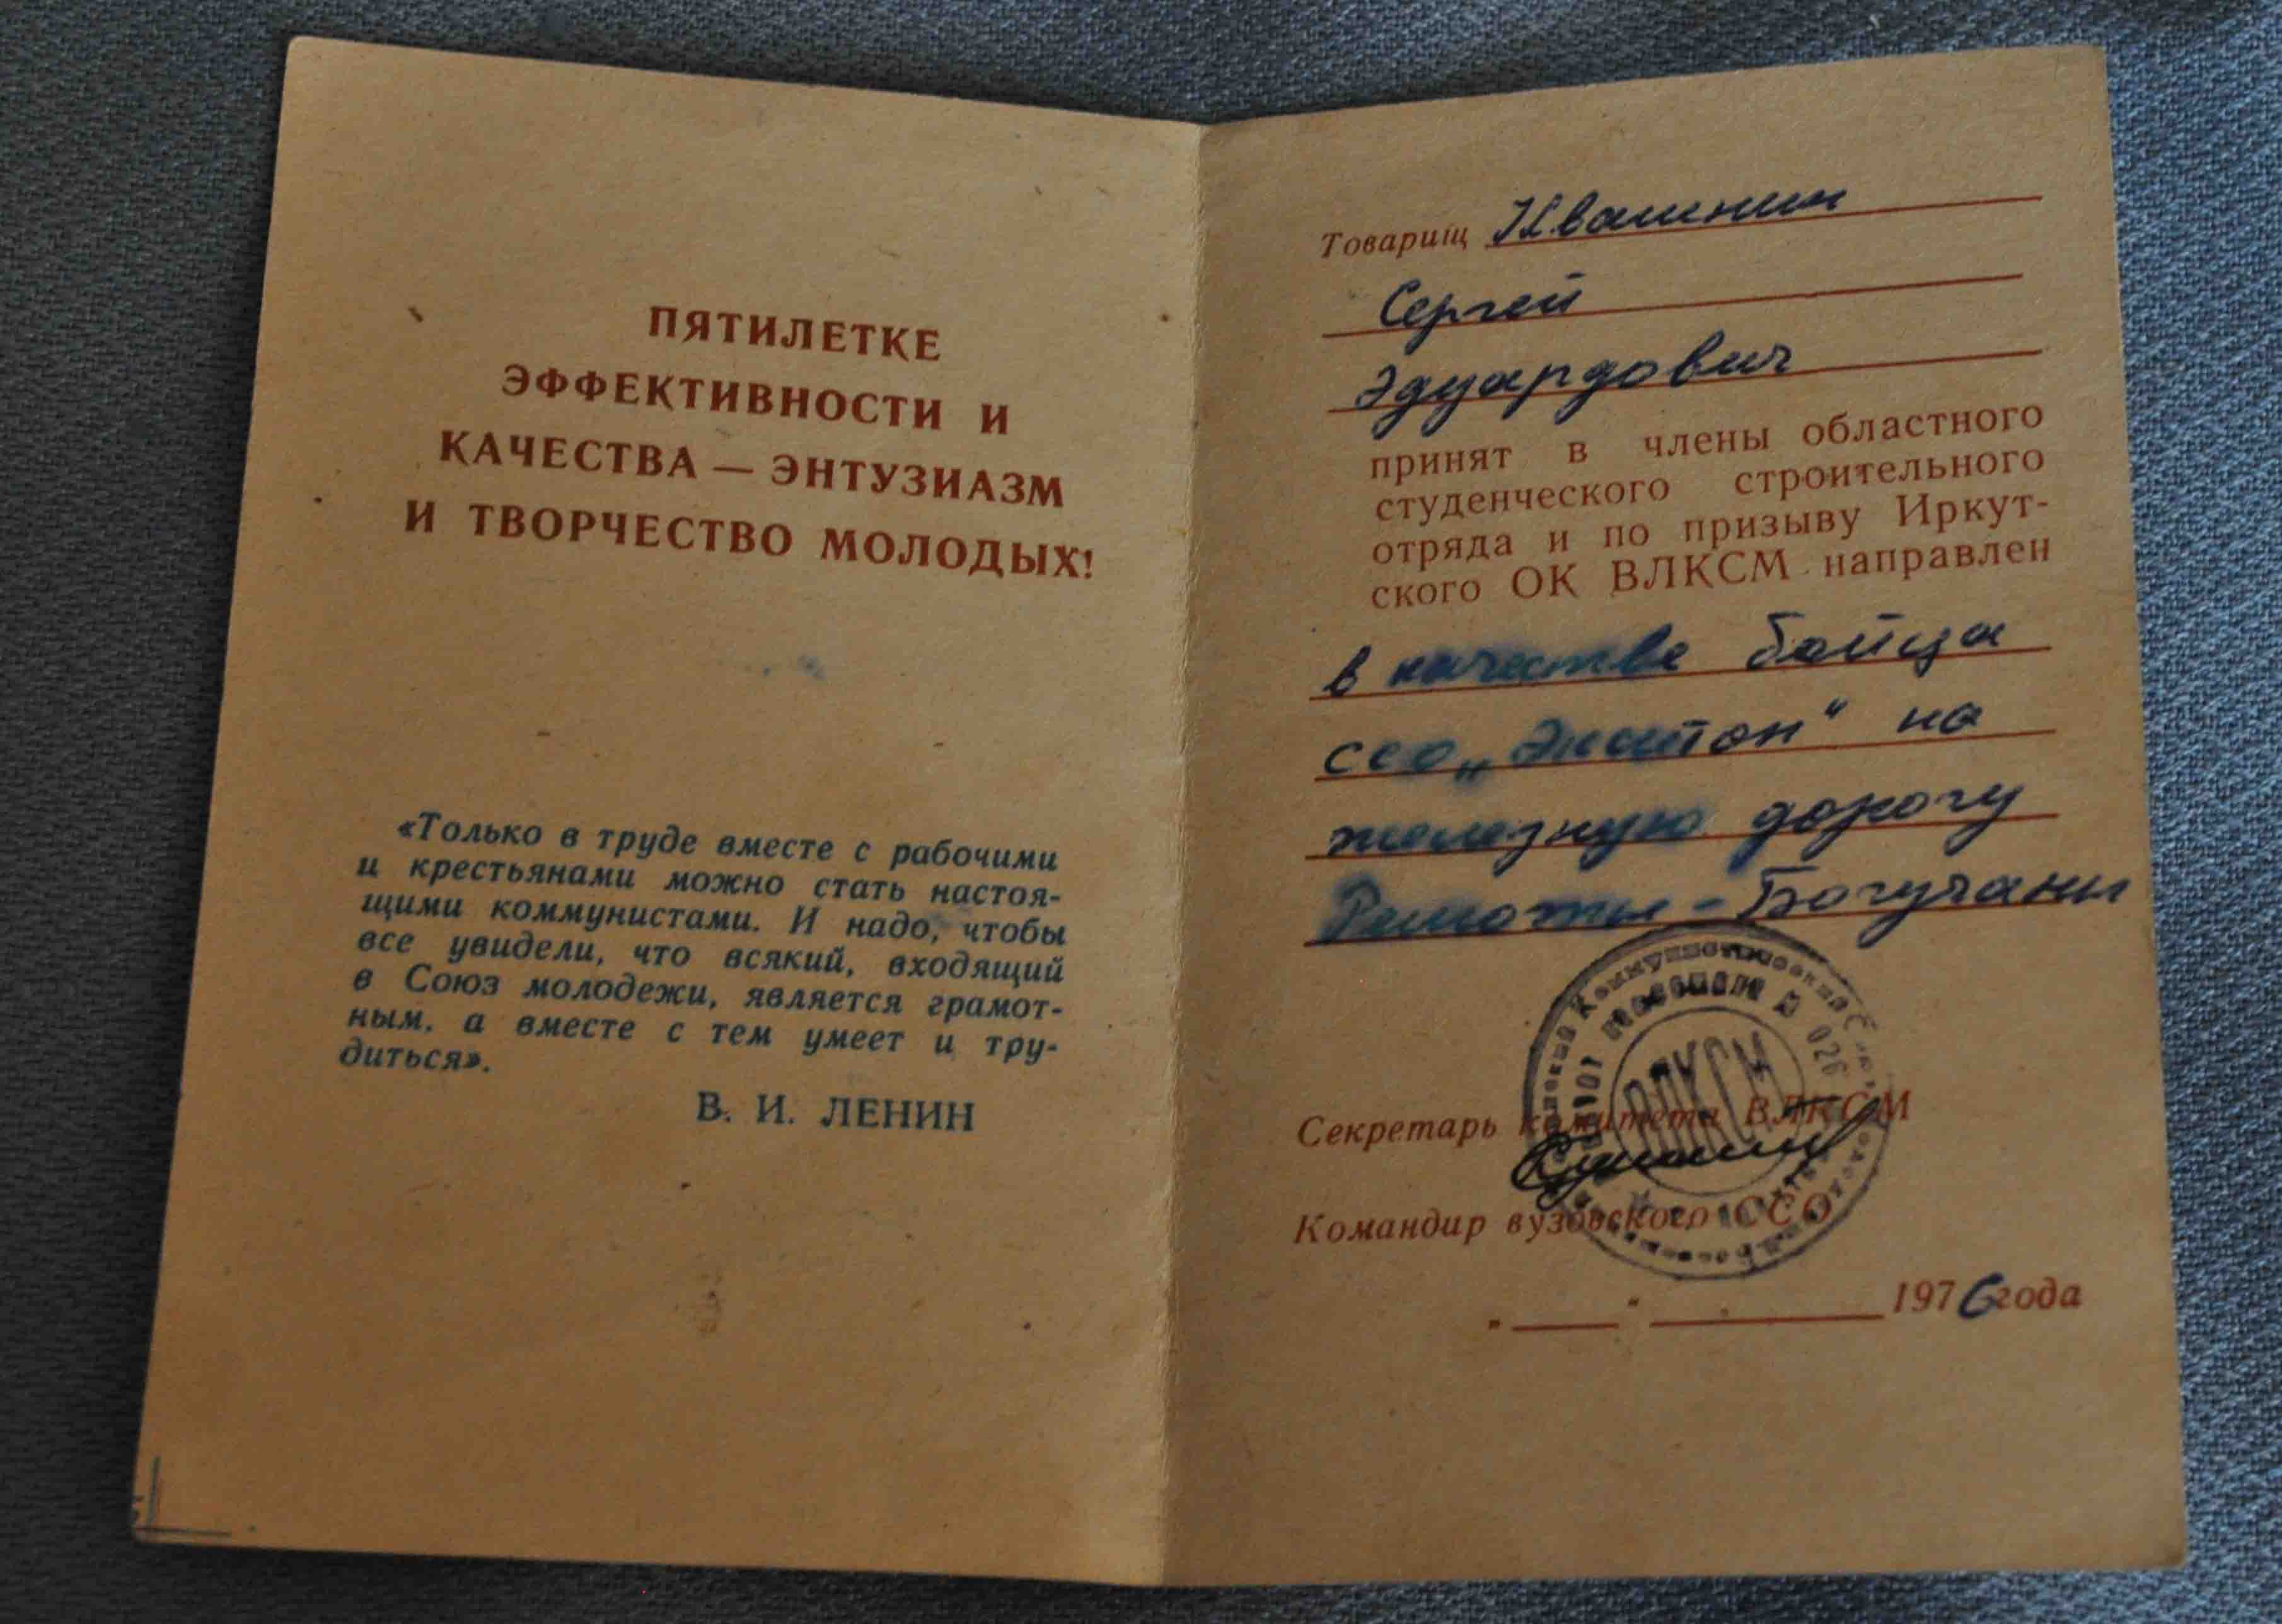 ПЯТИЛЕТКЕ
ЭФФЕКТИВНОСТИ И
КАЧЕСТВА — ЭНТУЗИАЗМ
И ТВОРЧЕСТВО МОЛОДЫХ!
«Только в труде вместе с рабочими
и крестьянами можно стать настоя-
щими коммунистами. И надо, чтобы
все увидели, что всякий, входящий
в Союз молодежи, является грамот-
ным, а вместе с тем умеет и тру-
диться».
В. И. ЛЕНИН
Товарищ Ивашнин
Сергей
Эдуардович
принят в члены областного
студенческого строительного
отряда и по призыву Иркут-
ского ОК ВЛКСМ направлен
в качестве бойца
ссо " на
железную дорогу
Решоты - Богучаны
ВЛКСМ
026
Секретарь комитета ВЛКСМ
Командир вузовского ССО
" " 1976 года